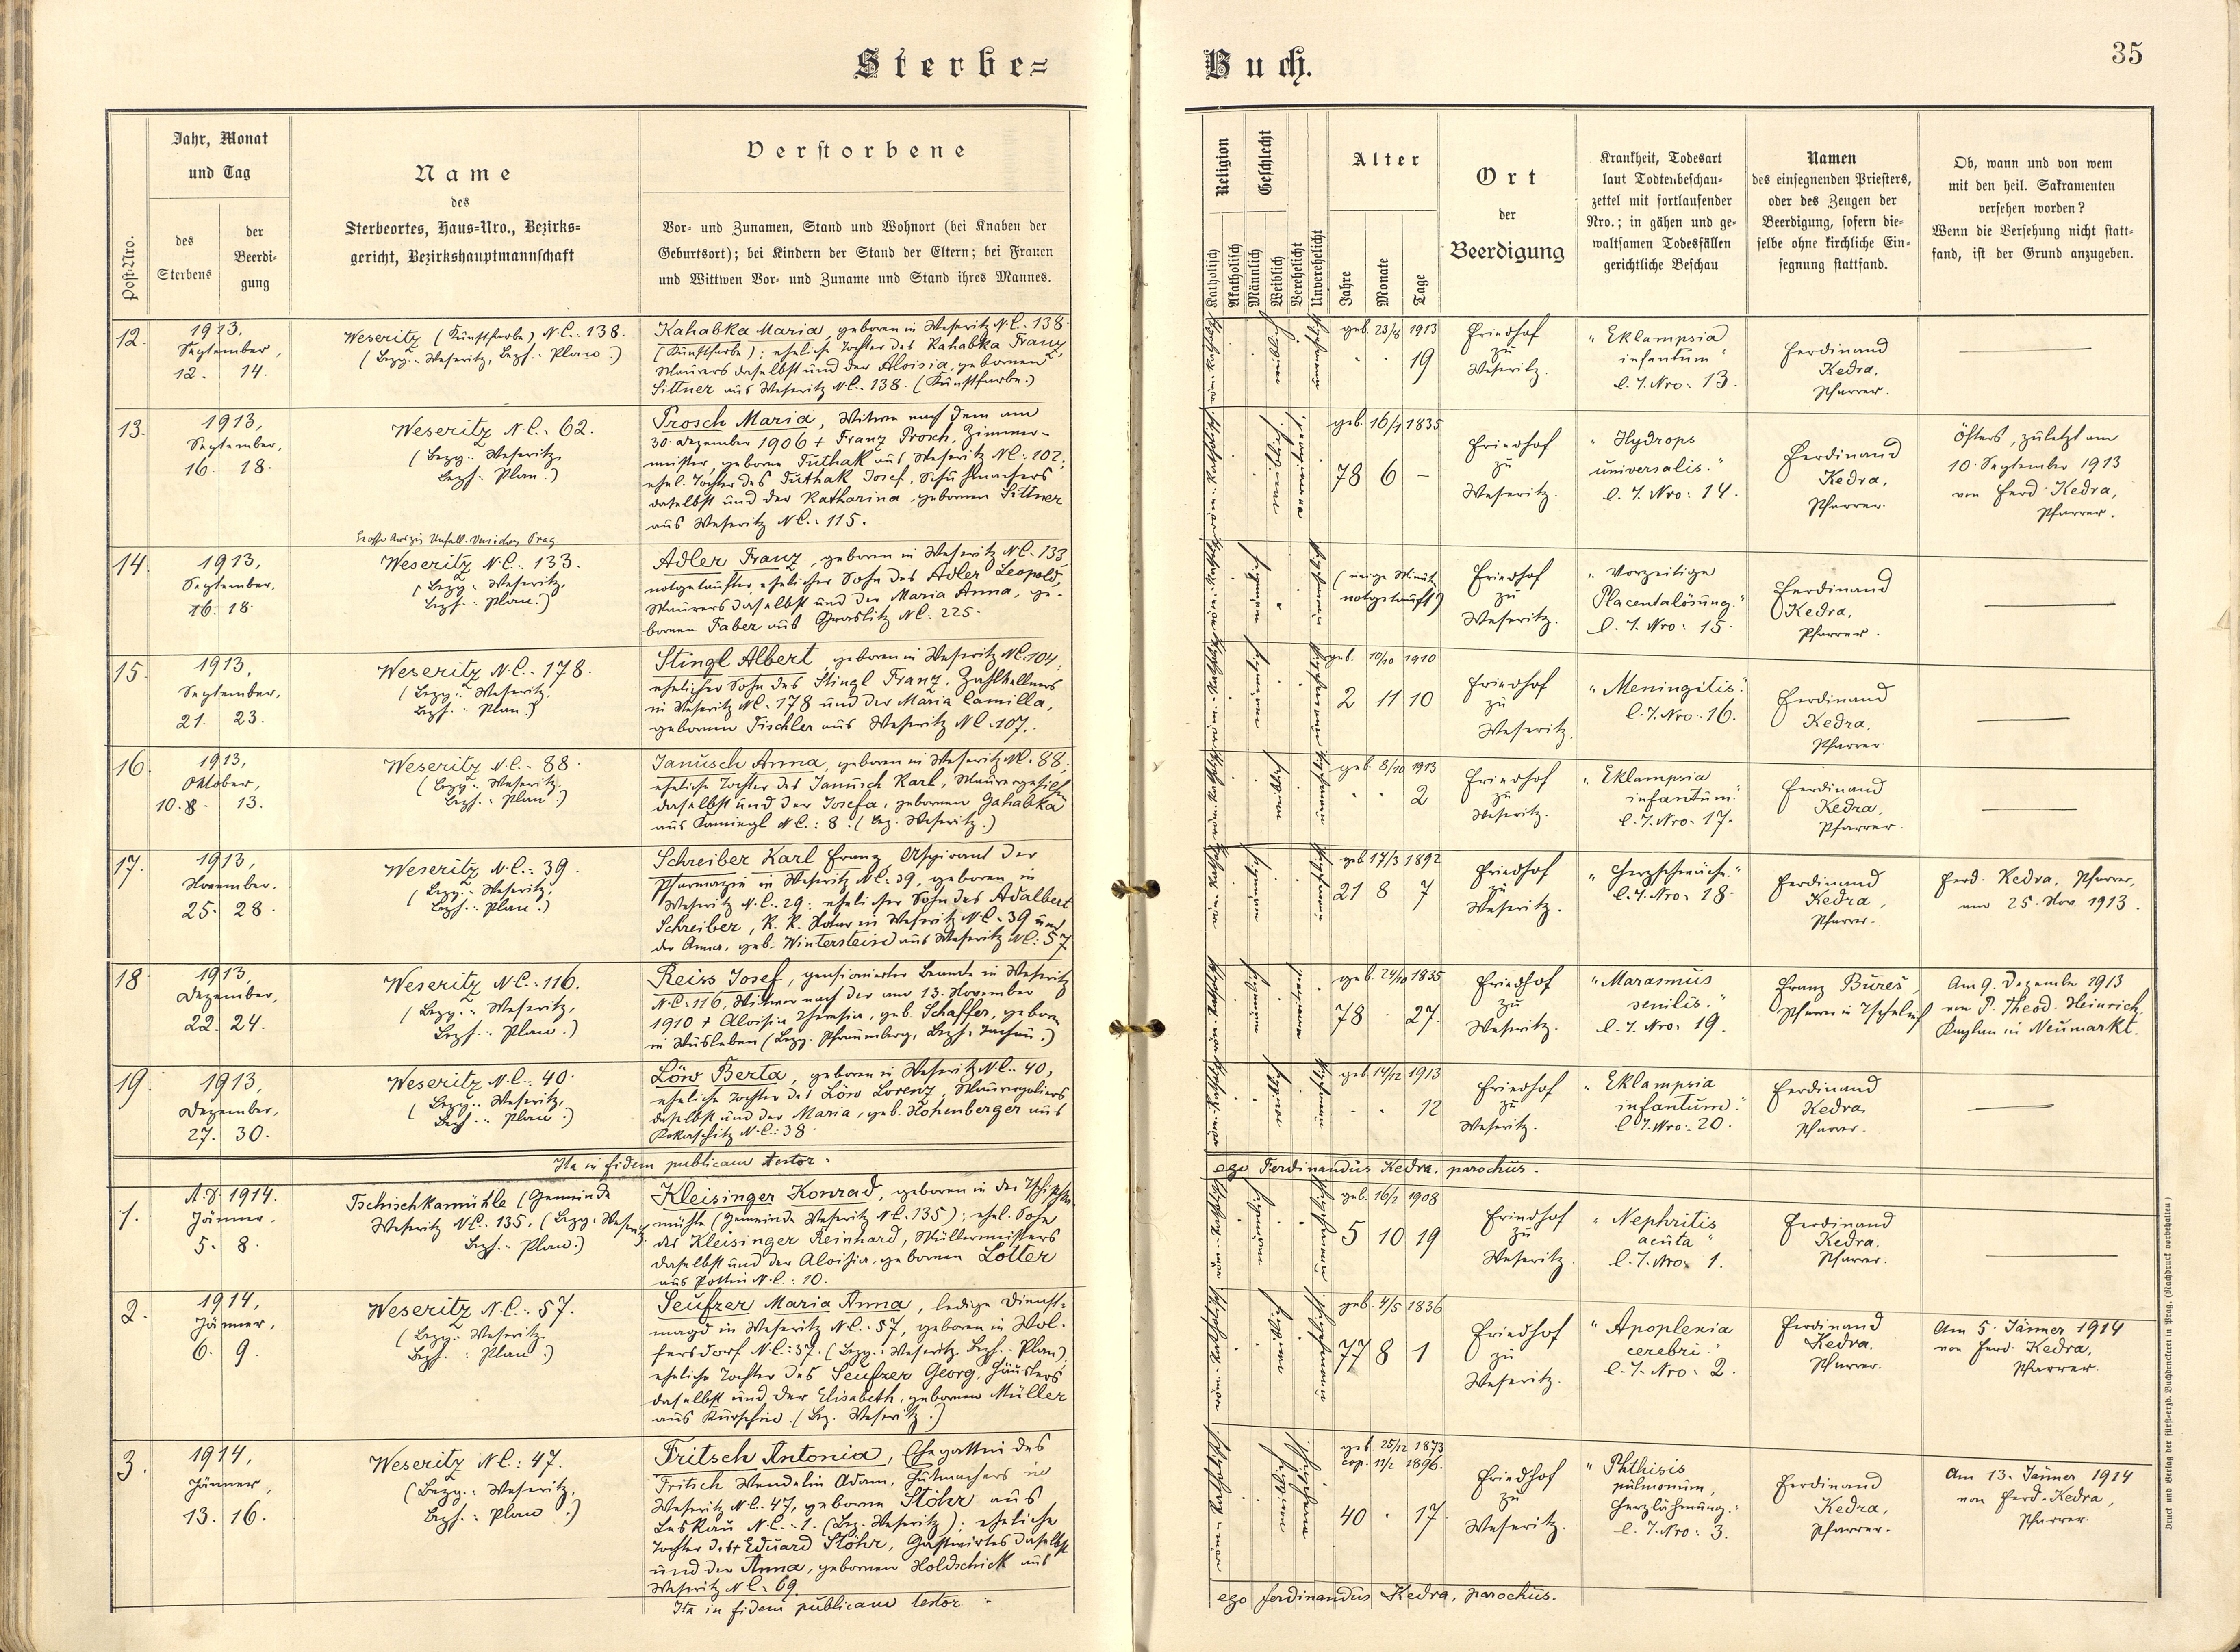 Sterbe=
Buch.
35
Post-Nro.
Jahr, Monat
und Tag
des
Sterbens
der
Beerdi-
gung
Name
des
Sterbeortes, Haus-Nro., Bezirks-
gericht, Bezirkshauptmannschaft
Verstorbene
Vor- und Zunamen, Stand und Wohnort (bei Knaben der
Geburtsort); bei Kindern der Stand der Eltern; bei Frauen
und Wittwen Vor- und Zuname und Stand ihres Mannes.
Religion
Katholisch
Akatholisch
Geschlecht
Männlich
Weiblich
Verehelicht
Unverehelicht
Alter
Jahre
Monate
Tage
Ort
der
Beerdigung
Krankheit, Todesart
laut Todtenbeschau-
zettel mit fortlaufender
Nro.; in gähen und ge-
waltsamen Todesfällen
gerichtliche Beschau
Namen
des einsegnenden Priesters,
oder des Zeugen der
Beerdigung, sofern die-
selbe ohne kirchliche Ein-
segnung stattfand.
Ob, wann und von wem
mit den heil. Sakramenten
versehen worden?
Wenn die Versehung nicht statt-
fand, ist der Grund anzugeben.
12.
1913,
September,
12. 14.
Weseritz (Kunstfarbe) N.C.: 138.
(Bezg.: Weseritz, Bezh.: Plan.)
Kahabka Maria, geboren in Weseritz N.C.: 138
(Kunstfarbe); eheliche Tochter des Kahabka Franz,
Maurers daselbst und der Aloisia, gebornen
Sittner aus Weseritz N.C.: 138. (Kunstfarbe.)
geb. 23/8 1913
19
Friedhof
zu
Weseritz.
"Eklampsia
infantum"
l. T. Nro: 13.
Ferdinand
Kedra,
Pfarrer.
13.
1913,
September,
16. 18.
Weseritz N.C.: 62.
(Bezg.: Weseritz,
Bezh.: Plan.)
Prosch Maria, Witwe nach dem am
30. Dezember 1906 † Franz Prosch, Zimmer-
meister, geborne Tuthak aus Weseritz N.C.: 102;
ehel. Tochter des Tuthak Josef, Schuhmachers
daselbst und der Katharina, gebornen Sittner
aus Weseritz N.C.: 115.
geb. 16/4 1835
78 6 –
Friedhof
zu
Weseritz.
"Hydrops
universalis."
l. T. Nro: 14.
Ferdinand
Kedra,
Pfarrer.
Öfters, zuletzt am
10. September 1913
von Ferd. Kedra,
Pfarrer.
14.
1913,
September,
16. 18.
Weseritz N.C.: 133.
(Bezg.: Weseritz,
Bezh.: Plan.)
Adler Franz, geboren in Weseritz N.C.: 133,
notgetaufter, ehelicher Sohn des Adler Leopold,
Maurers daselbst und der Maria Anna, ge-
bornen Faber aus Graslitz N.C.: 225.
(einige Minut.
notgetauft)
Friedhof
zu
Weseritz.
"Vorzeitige
Placentalösung."
l. T. Nro: 15.
Ferdinand
Kedra,
Pfarrer.
15.
1913,
September,
21. 23.
Weseritz N.C.: 178.
(Bezg.: Weseritz,
Bezh.: Plan.)
Stingl Albert, geboren in Weseritz N.C. 104,
ehelicher Sohn des Stingl Franz, Zahlkellners
in Weseritz N.C.: 178 und der Maria Camilla,
gebornen Tischler aus Weseritz N.C. 107.
geb. 10/10 1910
2 11 10
Friedhof
zu
Weseritz.
"Meningitis."
l. T. Nro. 16.
Ferdinand
Kedra,
Pfarrer.
16.
1913,
Oktober,
10. 13.
Weseritz N.C.: 88.
(Bezg.: Weseritz,
Bezh.: Plan.)
Janusch Anna, geboren in Weseritz N.C. 88;
eheliche Tochter des Janusch Karl, Maurergesellen
daselbst und der Josefa, gebornen Gahabka
aus N.C.: 8. (Bez. Weseritz.)
geb. 8/10 1913
2
Friedhof
zu
Weseritz.
"Eklampsia
infantum."
l. T. Nro: 17.
Ferdinand
Kedra,
Pfarrer.
17.
1913,
November.
25. 28.
Weseritz N.C.: 39.
(Bezg.: Weseritz,
Bezh.: Plan.)
Schreiber Karl Franz, Aspirant der
Pharmazie in Weseritz N.C. 39, geboren in
Weseritz N.C. 29; ehelicher Sohn des Adalbert
Schreiber, K. K. Notar in Weseritz N.C. 39 und
der Anna, geb. Winterstein aus Weseritz N.C.: 57.
geb. 17/3 1892
21 8 7
Friedhof
zu
Weseritz.
"Herzschwäche."
l. T. Nro: 18.
Ferdinand
Kedra,
Pfarrer.
Ferd. Kedra, Pfarrer,
am 25. Nov. 1913.
18.
1913,
Dezember,
22. 24.
Weseritz N.C.: 116.
(Bezg.: Weseritz,
Bezh.: Plan.)
Reiss Josef, pensionierter Beamte in Weseritz
N.C.: 116, Witwer nach der am 13. November
1910 † Aloisia Theresia, geb. Schaffer, geboren
in Wusleben (Bezg. Pfraumberg, Bezh. Tachau.)
geb. 24/10 1835
78 27.
Friedhof
zu
Weseritz.
"Marasmus
senilis."
l. T. Nro: 19.
Franz Bureš,
Pfarrer in
Am 9. Dezember 1913
von P. Theod. Heinrich,
Kaplan in Neumarkt.
19.
1913,
Dezember,
27. 30.
Weseritz N.C.: 40.
(Bezg.: Weseritz,
Bezh.: Plan.)
Löw Berta, geboren in Weseritz N.C.: 40,
eheliche Tochter des Löw Lorenz, Maurerpoliers
daselbst und der Maria, geb. Hohenberger aus
Kokaschitz N.C.: 38.
geb. 14/12 1913
12
Friedhof
zu
Weseritz.
"Eklampsia
infantum."
l. T. Nro: 20.
Ferdinand
Kedra,
Pfarrer.
Ita in fidem publicam testor:
ego Ferdinandus Kedra, parochus.
1.
A.D. 1914.
Jänner,
5. 8.
Tschischkamühle (Gemeinde
Weseritz N.C.: 135. (Bezg. Weseritz,
Bezh.: Plan.)
Kleisinger Konrad, geboren in der
mühle (Gemeinde Weseritz N.C. 135); ehel. Sohn
des Kleisinger Reinhard, Müllermeisters
daselbst und der Aloisia, gebornen Lotter
aus Pottin N.C.: 10.
geb. 16/2 1908
5 10 19
Friedhof
zu
Weseritz.
"Nephritis
acuta"
l. T. Nro. 1.
Ferdinand
Kedra.
Pfarrer.
2.
1914,
Jänner,
6. 9.
Weseritz N.C.: 57.
(Bezg.: Weseritz,
Bezh.: Plan.)
Seufzer Maria Anna, ledige Dienst-
magd in Weseritz N.C.: 57, geboren in Wol-
fersdorf N.C.: 37. (Bezg.: Weseritz, Bezh.: Plan),
eheliche Tochter des Seufzer Georg, Häuslers
daselbst und der Elisabeth, gebornen Müller
aus Kurschin. (Bez. Weseritz.)
geb. 4/5 1836
77 8 1
Friedhof
zu
Weseritz.
"Apoplexia
cerebri."
l. T. Nro: 2.
Ferdinand
Kedra.
Pfarrer.
Am 5. Jänner 1914
von Ferd. Kedra,
Pfarrer.
3.
1914,
Jänner,
13. 16.
Weseritz N.C.: 47.
(Bezg.: Weseritz,
Bezh.: Plan.)
Fritsch Antonia, Ehegattin des
Fritsch Wendelin Adam, Hutmachers in
Weseritz N.C. 47, geborne Stöhr aus
Leskau N.C.: 1. (Bez. Weseritz); eheliche
Tochter des † Eduard Stöhr, Gastwirtes daselbst
und der Anna, gebornen Holdschick aus
Weseritz N.C. 69.
geb. 25/12 1873
cop. 11/2 1896.
40 17.
Friedhof
zu
Weseritz.
"Phthisis
pulmonum,
Herzlähmung."
l. T. Nro: 3.
Ferdinand
Kedra,
Pfarrer.
Am 13. Jänner 1914
von Ferd. Kedra,
Pfarrer.
Ita in fidem publicam testor:
ego Ferdinandus Kedra, parochus.
Druck und Verlag der fürst-erzb. Buchdruckerei in Prag. (Nachdruck vorbehalten.)